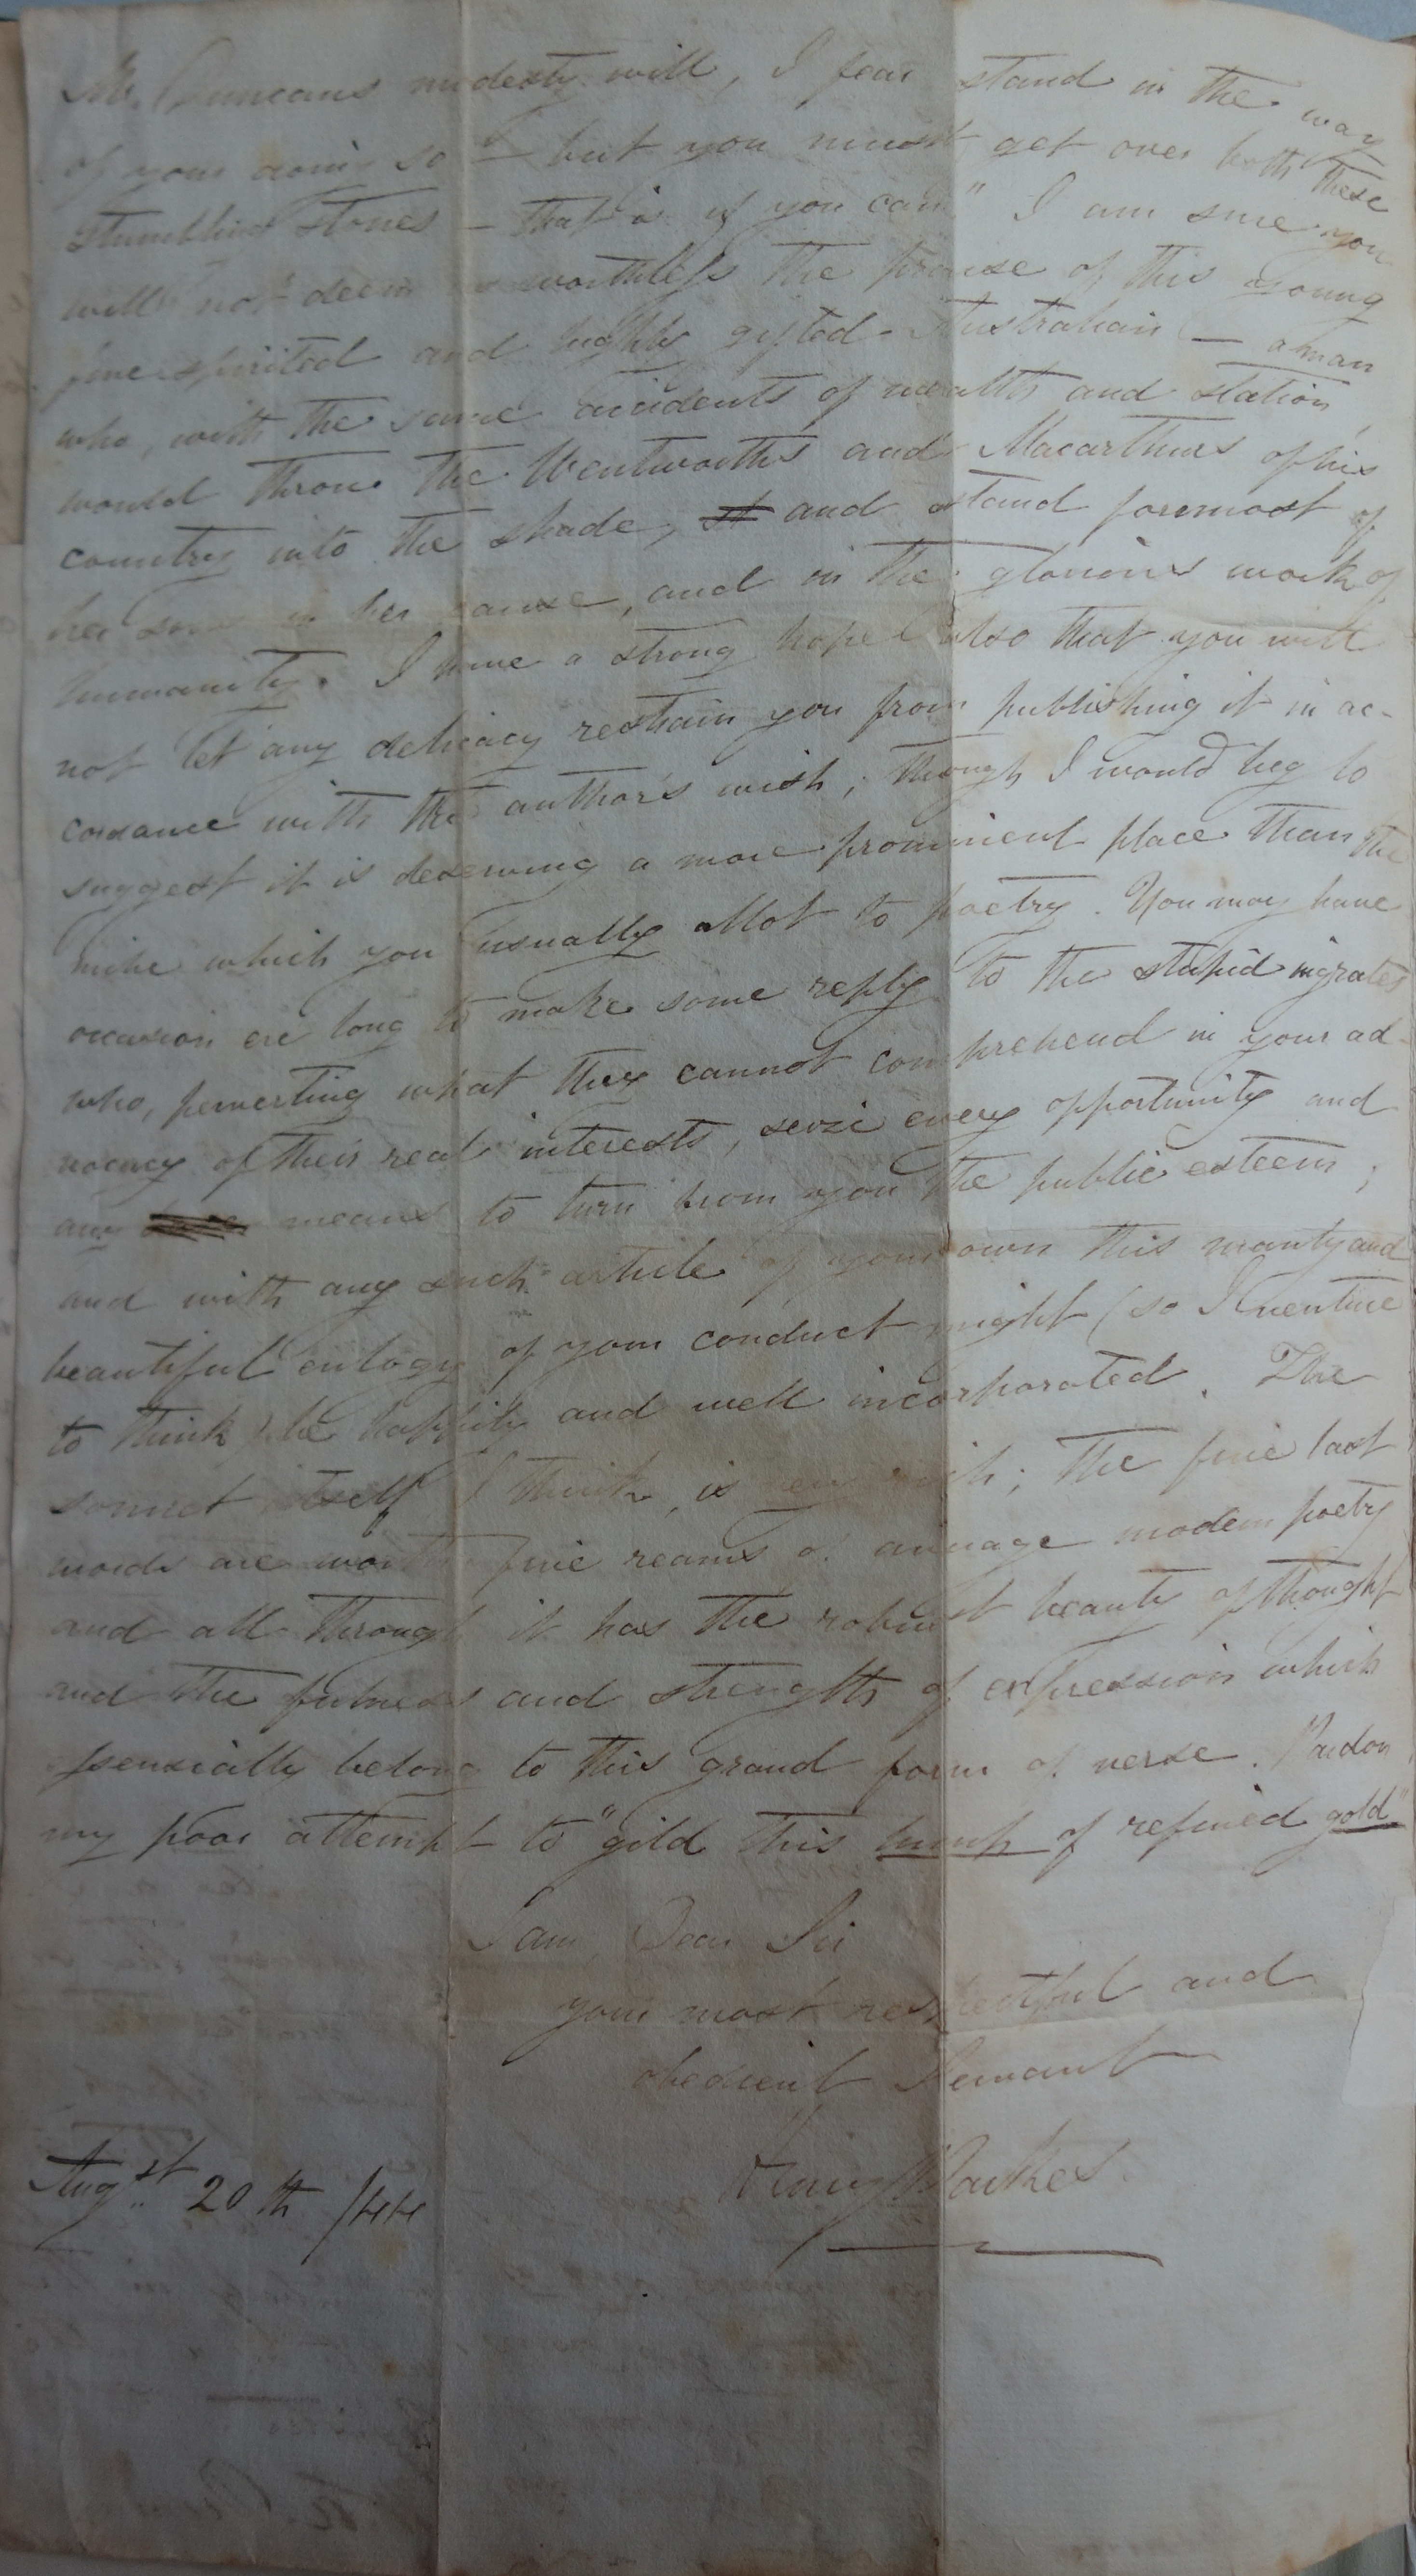 Mr. Duncans modesty will, I fear stand in the way
of your doing so — but you must get over both these
stumbling stones — that is if you can" I am sure you
will not deem worthless the praise of this young
fine spirited and highly gifted Australian — a man
who, with the same accidents of wealth and station,
would throw the Wentworths and Macarthurs of his
country into the shade, st and stand foremost of
her sons in her cause, and in the glorious work of
humanity. I have a strong hope also that you will
not let any delicacy restrain you from publishing it in ac-
cordance with the author's wish; though I would beg to
suggest it is deserving a more prominent place than the
niche which you usually allot to poetry. You may have
occasion ere long to make some reply to the stupid ingrates
who, perverting what they cannot comprehend in your ad-
vocacy of their real interests, seize every opportunity and
any means to turn from you the public esteem;
and with any such article of your own this manly and
beautiful eulogy of your conduct might (so I venture
to think) be happily and well incorporated. The
sonnet itself I think is very rich; the five last
words are worth five reams of average modern poetry
and all through it has the robust beauty of thought
and the fulness and strength of expression which
essencially belong to this grand form of verse. Pardon
my poor attempt to "gild this lump of refined gold"
I am, Dear Sir
your most respectful and
obedient Servant
Henry Parkes.
Augst. 20th /44